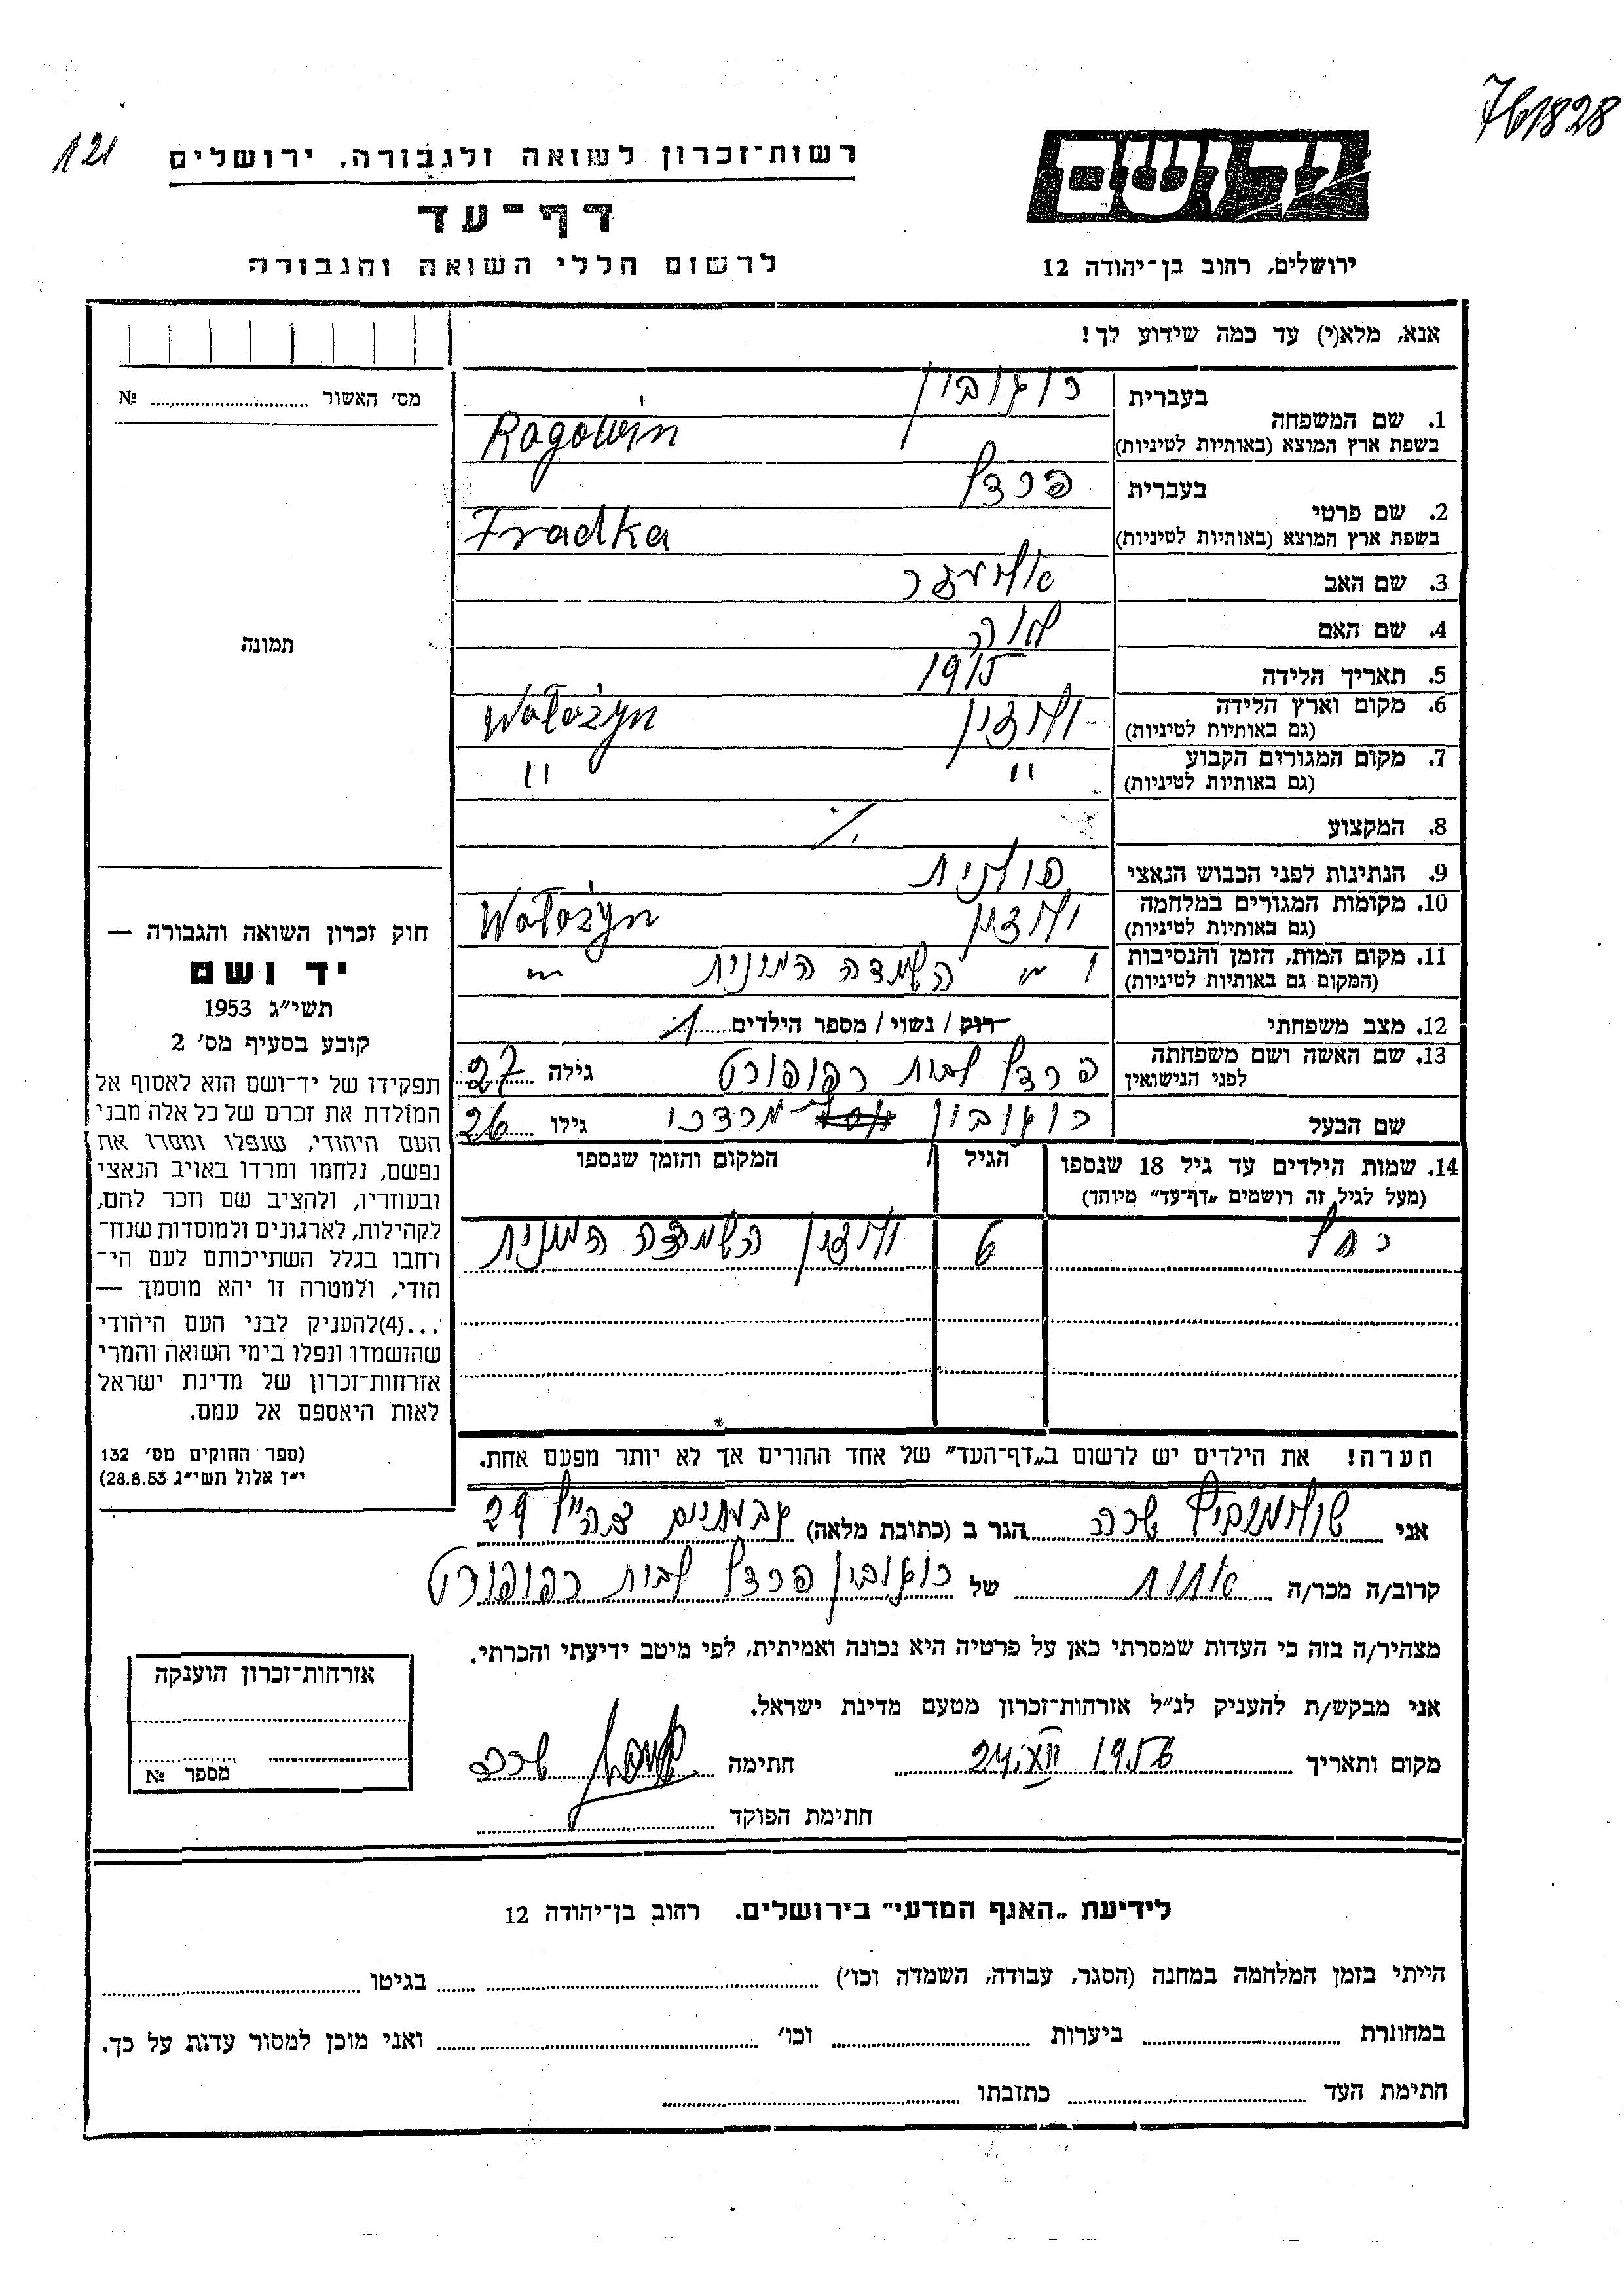 761828
121
יד ושם
רשות־זכרון לשואה ולגבורה, ירושלים
דף־עד
לרשום חללי השואה והגבורה
ירושלים, רחוב בן־יהודה 12
אנא, מלא(י) עד כמה שידוע לך!
מס' האשור № 
בעברית רוגובין
1. שם המשפחה
בשפת ארץ המוצא (באותיות לטיניות) Ragowin
בעברית פרדל
2. שם פרטי
בשפת ארץ המוצא (באותיות לטיניות) Fradka
3. שם האב אליעזר
4. שם האם
5. תאריך הלידה 1915
6. מקום וארץ הלידה ולוז'ין Wołożyn
(גם באותיות לטיניות)
7. מקום המגורים הקבוע " "
(גם באותיות לטיניות)
8. המקצוע ./.
9. הנתינות לפני הכבוש הנאצי פולנית
10. מקומות המגורים במלחמה Wołożyn
(גם באותיות לטיניות)
11. מקום המות, הזמן והנסיבות השמדה המונית
(המקום גם באותיות לטיניות)
12. מצב משפחתי רוק / נשוי / מספר הילדים 1
13. שם האשה ושם משפחתה פרדל לבית רפופורט גילה 27
לפני הנישואין
שם הבעל רוגובין מרדכי גילו 26
14. שמות הילדים עד גיל 18 שנספו הגיל המקום והזמן שנספו
(מעל לגיל זה רושמים „דף־עד" מיוחד)
רחל 6 השמדה המונית
הערה! את הילדים יש לרשום ב„דף־העד" של אחד ההורים אך לא יותר מפעם אחת.
תמונה
חוק זכרון השואה והגבורה —
יד ושם
תשי״ג 1953
קובע בסעיף מס' 2
תפקידו של יד־ושם הוא לאסוף אל
המולדת את זכרם של כל אלה מבני
העם היהודי, שנפלו ומסרו את
נפשם, נלחמו ומרדו באויב הנאצי
ובעוזריו, ולהציב שם וזכר להם,
לקהילות, לארגונים ולמוסדות שנח־
רחבו בגלל השתייכותם לעם הי־
הודי, ולמטרה זו יהא מוסמך —
...(4)להעניק לבני העם היהודי
שהושמדו ונפלו בימי השואה והמרי
אזרחות־זכרון של מדינת ישראל
לאות היאספם אל עמם.
(ספר החוקים מס' 132
י״ז אלול תשי״ג 28.8.53)
אני שרה הגר ב (כתובת מלאה) גבעתיים צה״ל 29
קרוב/ה מכר/ה אחות של רוגובין פרדל לבית רפופורט
מצהיר/ה בזה כי העדות שמסרתי כאן על פרטיה היא נכונה ואמיתית, לפי מיטב ידיעתי והכרתי.
אני מבקש/ת להעניק לנ״ל אזרחות־זכרון מטעם מדינת ישראל.
מקום ותאריך 24.XII 1956 חתימה שרה
חתימת הפוקד
אזרחות־זכרון הוענקה
מספר №
לידיעת „האגף המדעי" בירושלים. רחוב בן־יהודה 12
הייתי בזמן המלחמה במחנה (הסגר, עבודה, השמדה וכו') בגיטו
במחתרת ביערות וכו' ואני מוכן למסור עדות על כך.
חתימת העד כתובתו